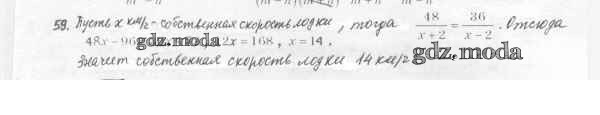 59. Пусть x км/ч - собственная скорость лодки, тогда 48/(x+2) = 36/(x-2). Отсюда
48x - 96 2x = 168, x = 14.
gdz.moda
Значит собственная скорость лодки 14 км/ч
gdz.moda